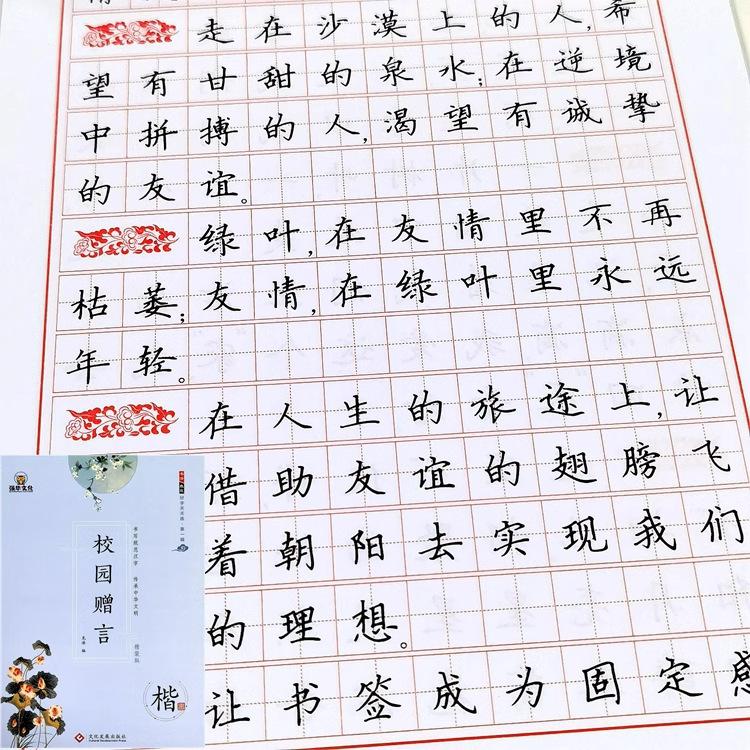 走在沙漠上的人,希
望有甘甜的泉水;在逆境
中拼搏的人,渴望有诚挚
的友谊。
绿叶,在友情里不再
枯萎;友情,在绿叶里永远
年轻。
在人生的旅途上,让
借助友谊的翅膀飞
着朝阳去实现我们
的理想。
让书签成为固定感
书写规范汉字 传承中华文明
校园赠言
楷
文化发展出版社
Cultural Development Press